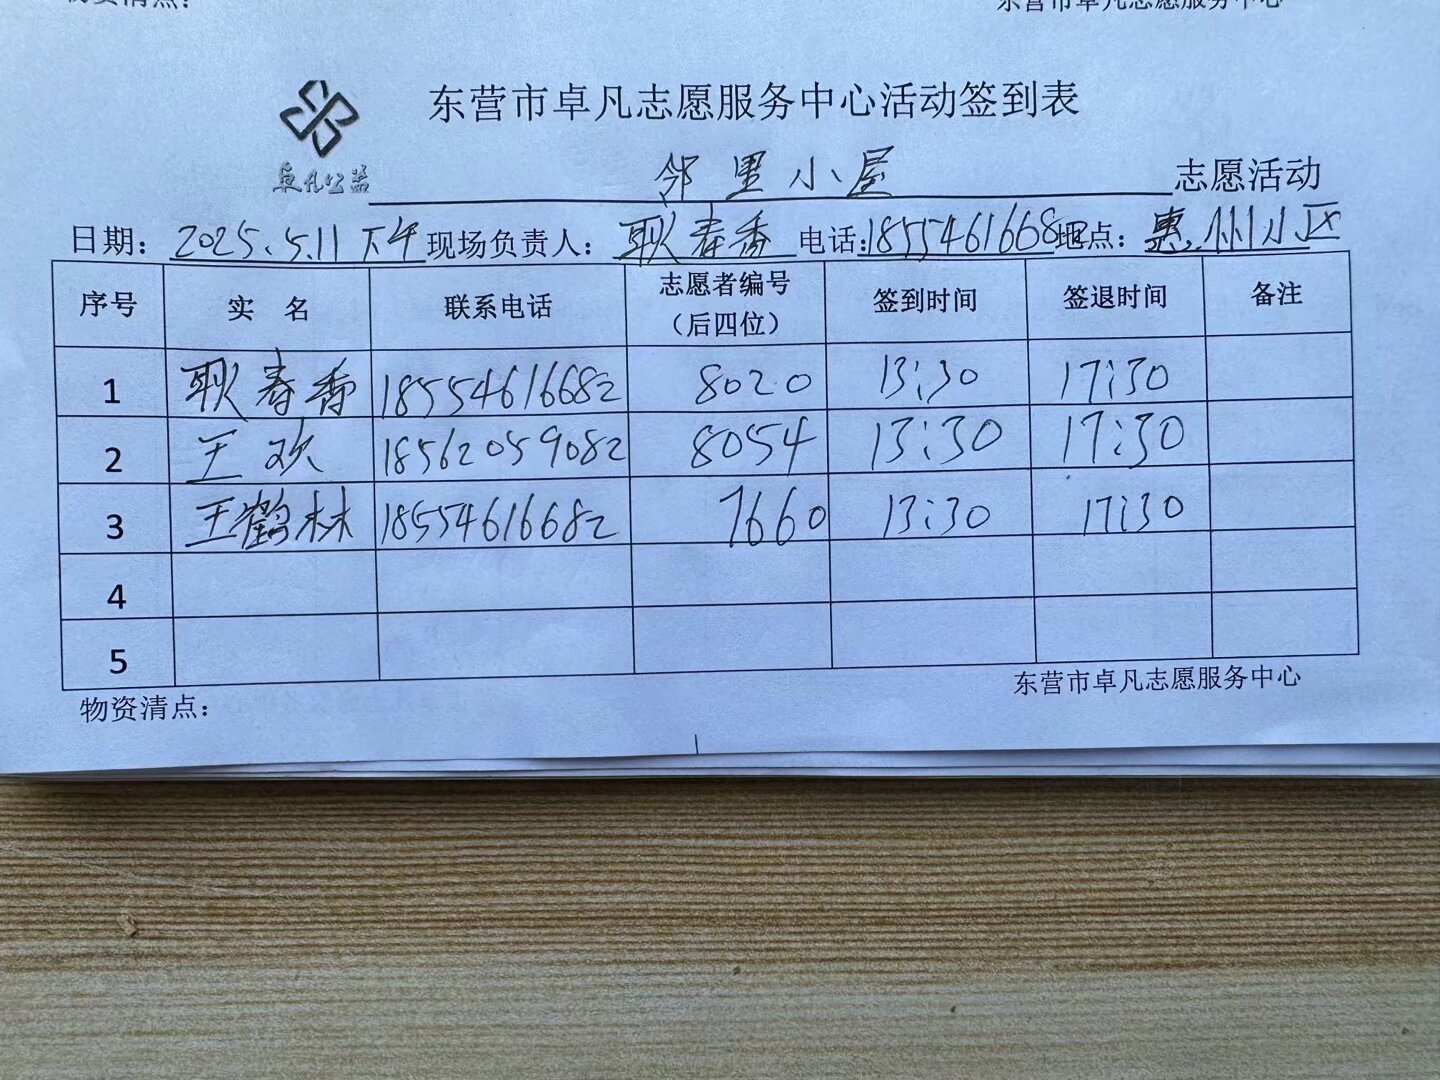 物资清点：
东营市卓凡志愿服务中心
东营市卓凡志愿服务中心活动签到表
卓凡公益
邻里小屋 志愿活动
日期：2025.5.11下午 现场负责人：耿春香 电话：1855461668 地点：惠州小区
序号 实 名 联系电话 志愿者编号（后四位） 签到时间 签退时间 备注
1 耿春香 18554616682 8020 13:30 17:30
2 王欢 18562059082 8054 13:30 17:30
3 王鹤林 18554616682 7660 13:30 17:30
4
5
物资清点：
东营市卓凡志愿服务中心